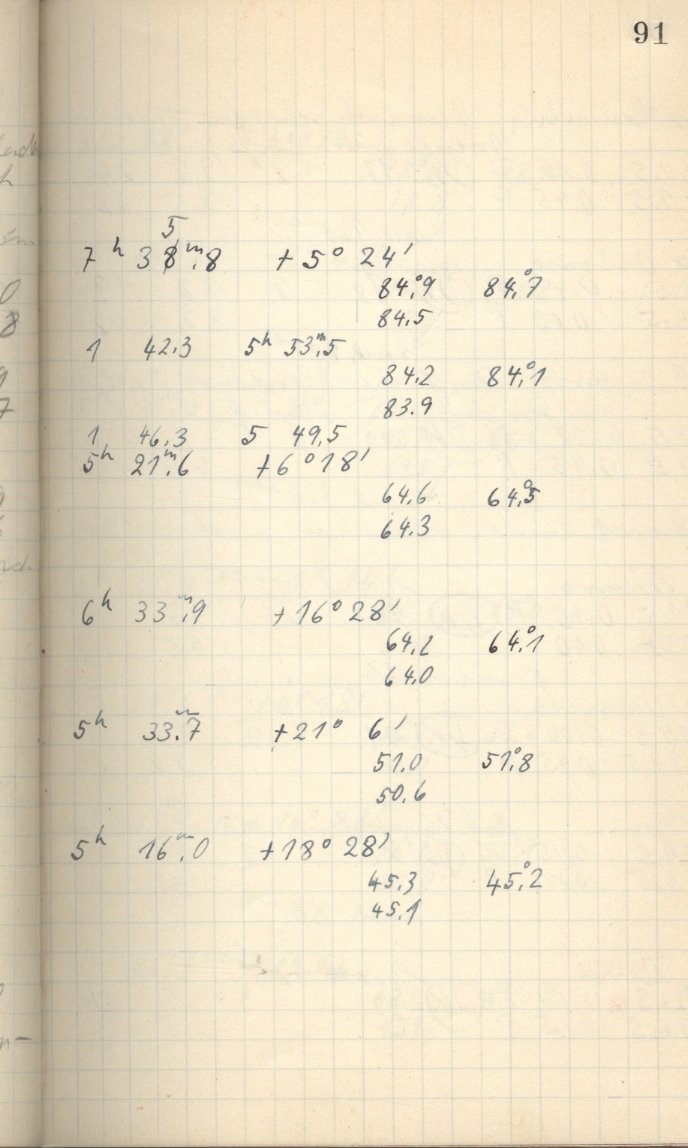 91
5
7ʰ 38ᵐ.8 + 5° 24'
84.°9 84.°7
84.5
1 42.3 5ʰ 53.ᵐ5
84.2 84.°1
83.9
1 46.3 5 49.5
5ʰ 21.ᵐ6 + 6° 18'
64.6 64.°5
64.3
6ʰ 33.ᵐ9 + 16° 28'
64.2 64.°1
64.0
5ʰ 33.ᵐ7 + 21° 6'
51.0 51.°8
50.6
5ʰ 16.ᵐ0 + 18° 28'
45.3 45.°2
45.1